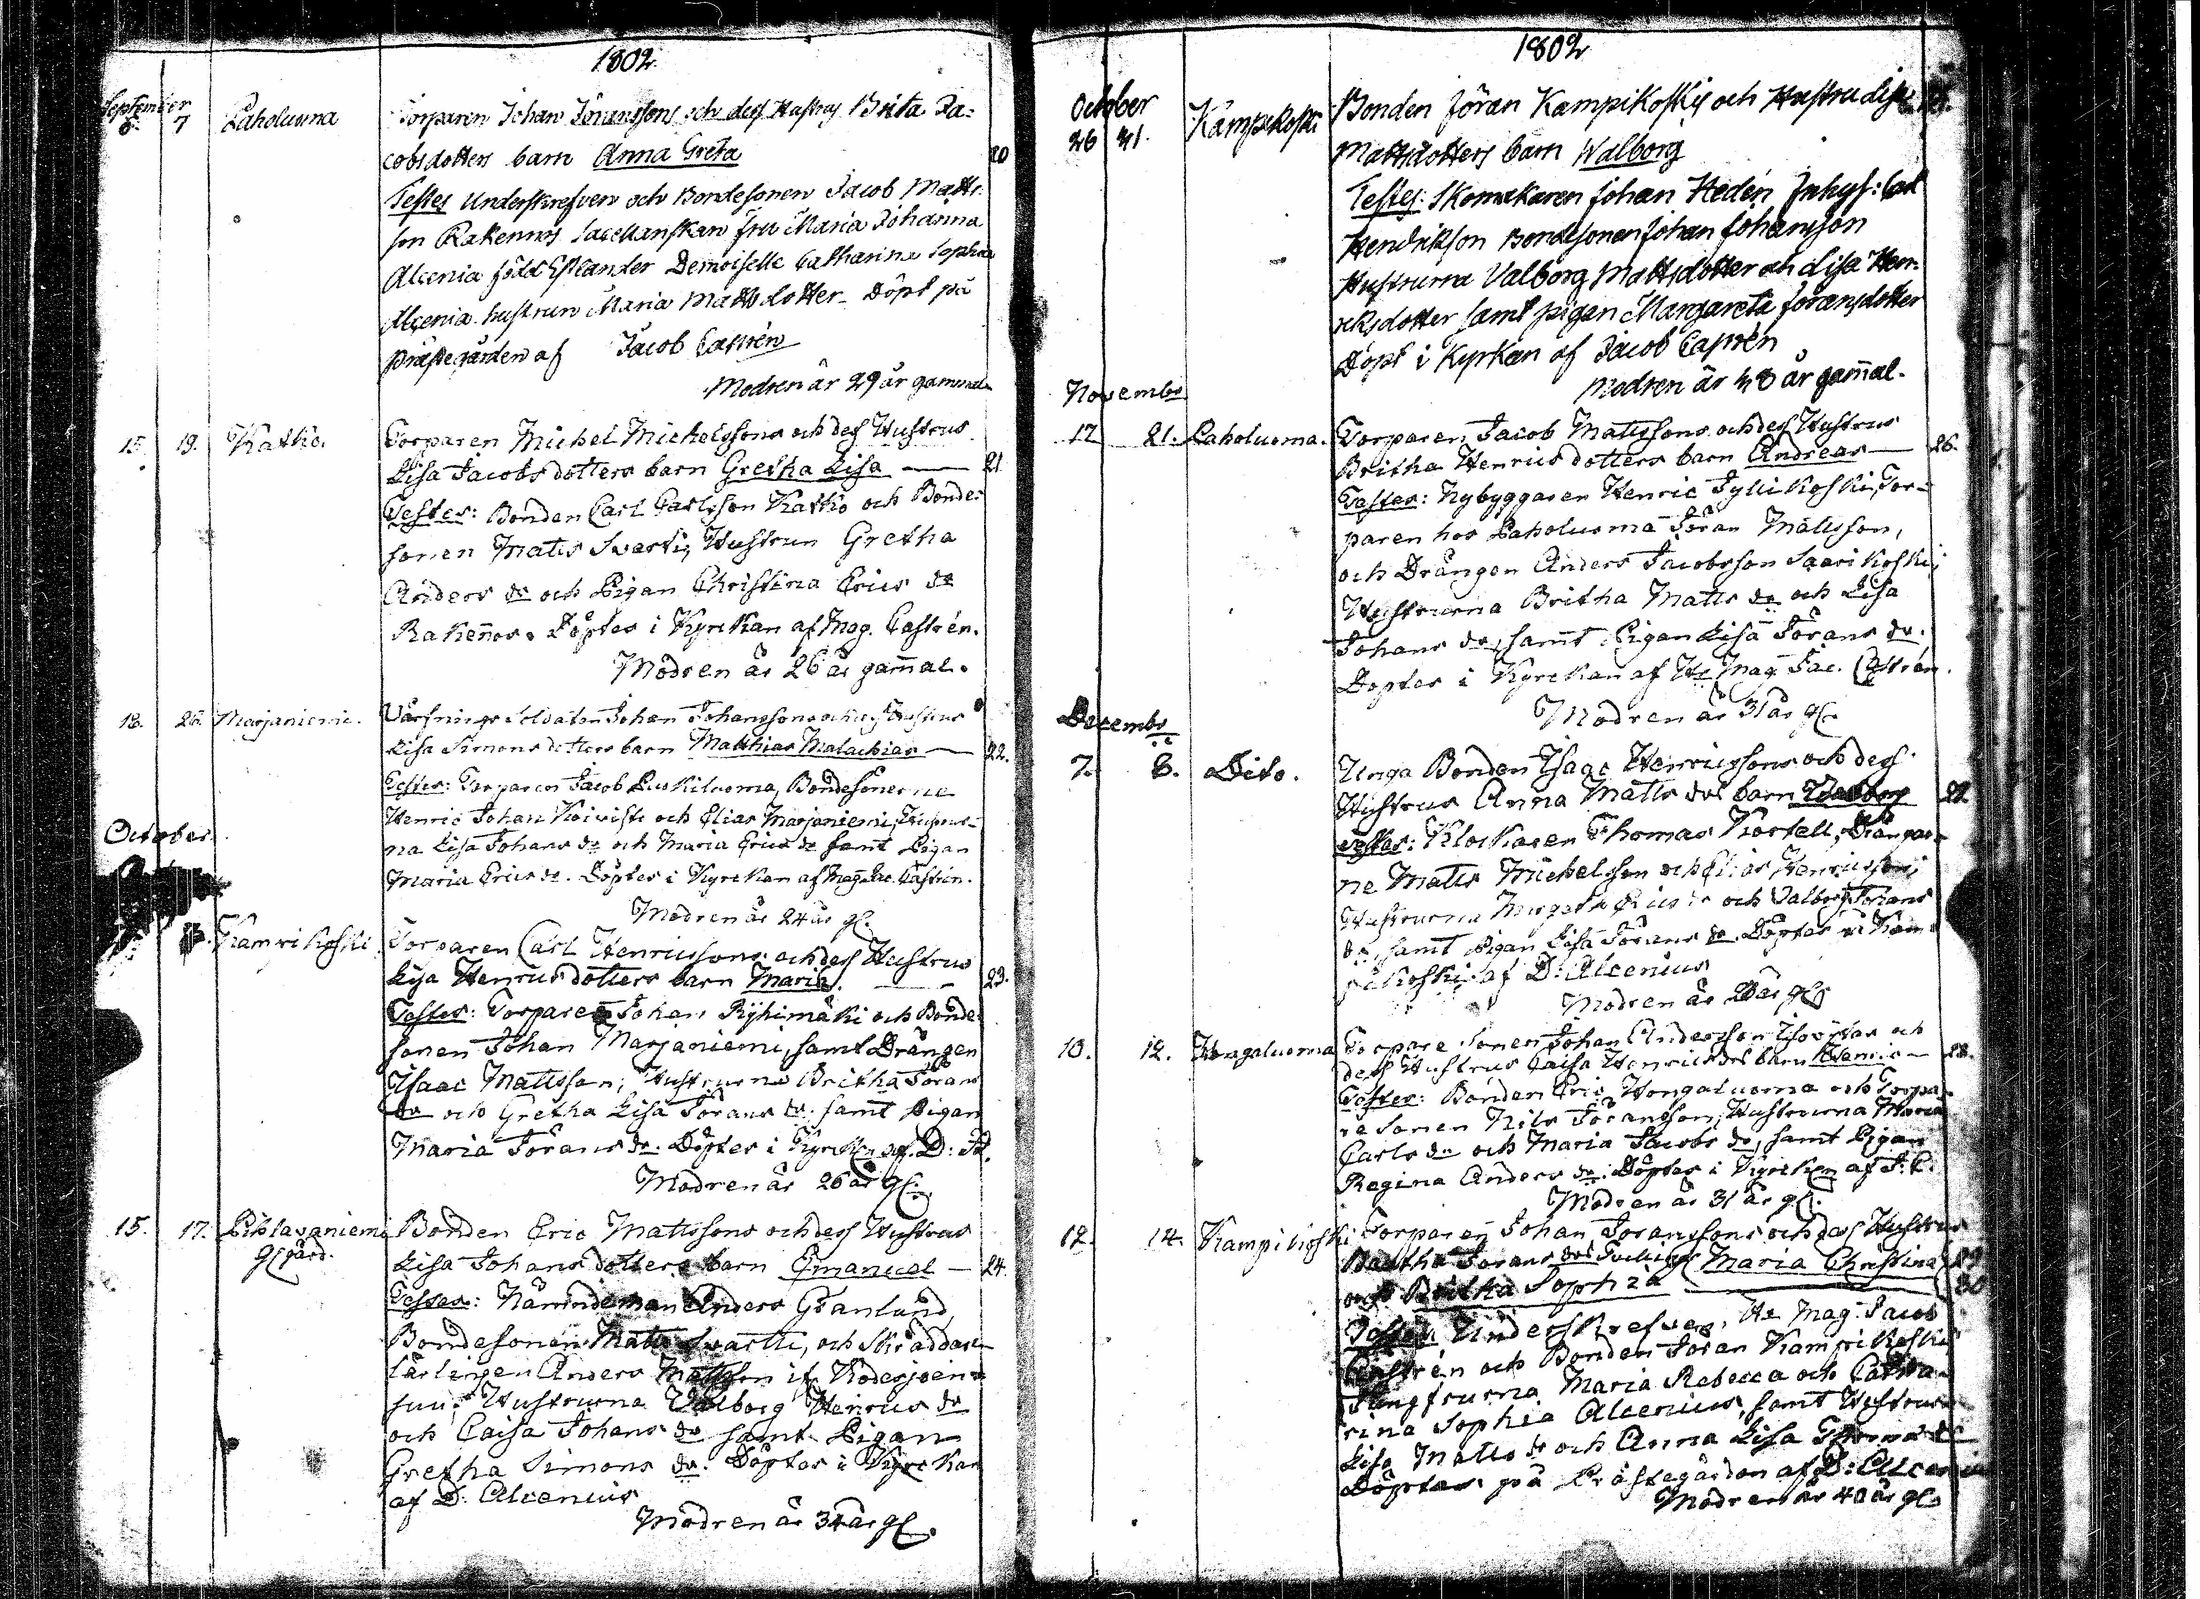 1802
September
6. 7 Laholuoma Torparen Johan Jöranssons och dess Hustrus Brita Ja-
cobsdotters barn Anna Greta 20
Testes Underskrefven och Bondesonen Jacob Matts-
son Rakennos Sacellanskan fru Maria Johanna
Alcenia född Estlander Demoiselle Catharina Sophia
Alcenia hustrun Maria Mattsdotter Döpt på
Prästegården af Jacob Castrén
Modren är 29 år gammal
15. 19. Katko. Torparen Michel Michelssons och dess Hustrus
Lisa Jacobsdotters barn Gretha Lisa 21
Testes: Bonden Carl Carlsson Katko och Bonde-
sonen Matts Svarti, Hustrun Gretha
Anders dr och Pigan Christina Erics dr
Rakeños. Döptes i Kyrckan af Mag. Castrén.
Modren är 26 år gam̄al.
18. 26. Marjaniemi. Vårfrings Soldaten Johan Johanssons och dess Hustrus
Lisa Simons dotters barn Matthias Malachias 22.
Testes: Torparen Jacob Luokiluoma, Bondesönerne
Henric Johan Koivisto och Elias Marjaniemi, Hustrur-
na Lisa Johans dr och Maria Erics dr samt Pigan
Maria Erics dr. Döptes i Kyrckan af Mag Jac. Castrén.
Modren är 24 år gl.
October
13. Kampikoski Torparen Carl Henricssons och dess Hustrus
Lisa Henrics dotters barn Maria. 23.
Testes: Torparen Johan Ryhimäki och Bonde-
sonen Johan Marjaniemi, samt Drängen
Isaac Mattsson, Hustrurna Britha Jörans
dr och Gretha Lisa Jörans dr. samt Pigan
Maria Jörans dr. Döptes i Kyrckan af D: A.
Modren är 26 år gl.
15. 17. Pihlavaniemi Bonden Eric Mattssons och dess Hustrus
gl gård. Lisa Johans dotters barn Emanuel 24.
Testes: Nämndeman Anders Granlund,
Bondesonen Matts Svartti, och Skräddare
lärlingen Anders Mattsson
Hustrurna Valborg Henrics dr
och Caisa Johans dr samt Pigan
Gretha Simons dr. Döptes i Kyrckan
af D: Alcenius
Modren är 34 år gl.
1802
October
26 31. Kampikoski Bonden Jöran Kampikoskis och Hustru Lisa
Mattsdotters barn Walborg
Testes: Skomakaren Johan Hedén Inhys: Carl
Hendrikson Bondesonen Johan Johansson
Hustrurna Valborg Mattsdotter och Lisa Hen-
riksdotter samt pigan Margareta Jöransdotter
Döpt i Kyrkan af Jacob Castrén
Modren är 48 år gam̄al.
Novembr
17 21. Laholuoma. Torparen Jacob Mattssons och dess Hustrus
Britha Henrics dotters barn Andreas 26.
Testes: Nybyggaren Henric Jyllikoski, Tor-
paren hos Laholuoma Jöran Mattsson,
och Drängen Anders Jacobsson Saarikoski;
Hustrurna Britha Matts dr och Lisa
Johans dr, samt Pigan Lisa Jörans dr.
Döptes i Kyrckan af Hr Mag Jac. Castrén.
Modren är 31 år gl.
Decembr
7. 8. Dito. Unga Bonden Isaac Henricssons och dess
Hustrus Anna Matts drs barn Walborg 27
Testes: Klockaren Thomas Kortell, Drängar-
ne Matts Michelsson och Elias Henricsson;
Hustrurna Margeta Erics dr och Valborg Johans
dr, samt Pigan Lisa Jörans dr. Döptes i Kam-
pikoski af D: Alcenius
Modren är år gl
10. 12. Hongaluoma Torpare Sonen Johan Andersson och
dess Hustrus Caisa Henrics drs barn Henric 28.
Testes: Bonden Eric Hongaluoma och Torpa-
re Sonen Nils Jöransson, Hustrurna Maria
Carls dr och Maria Jacobs dr, samt Pigan
Regina Anders dr. Döptes i Kyrckan af J. C.
Modren är 31 år gl.
12. 14. Kampikoski Torparen Johan Jöranssons och dess Hustrus
Britha Jörans drs Tvillingar Maria Christina 29
och Britha Sophia 30
Testes Underskrefven, Hr Mag: Jacob
Castrén och Bonden Jöran Kampikoski
Jungfrurna Maria Rebecca och Catha-
rina Sophia Alcenius, samt Hustrurna
Lisa Matts dr och Anna Lisa Thomæ dr
Döptes på Prästegården af D: Alcenius
Modren är 40 år gl.